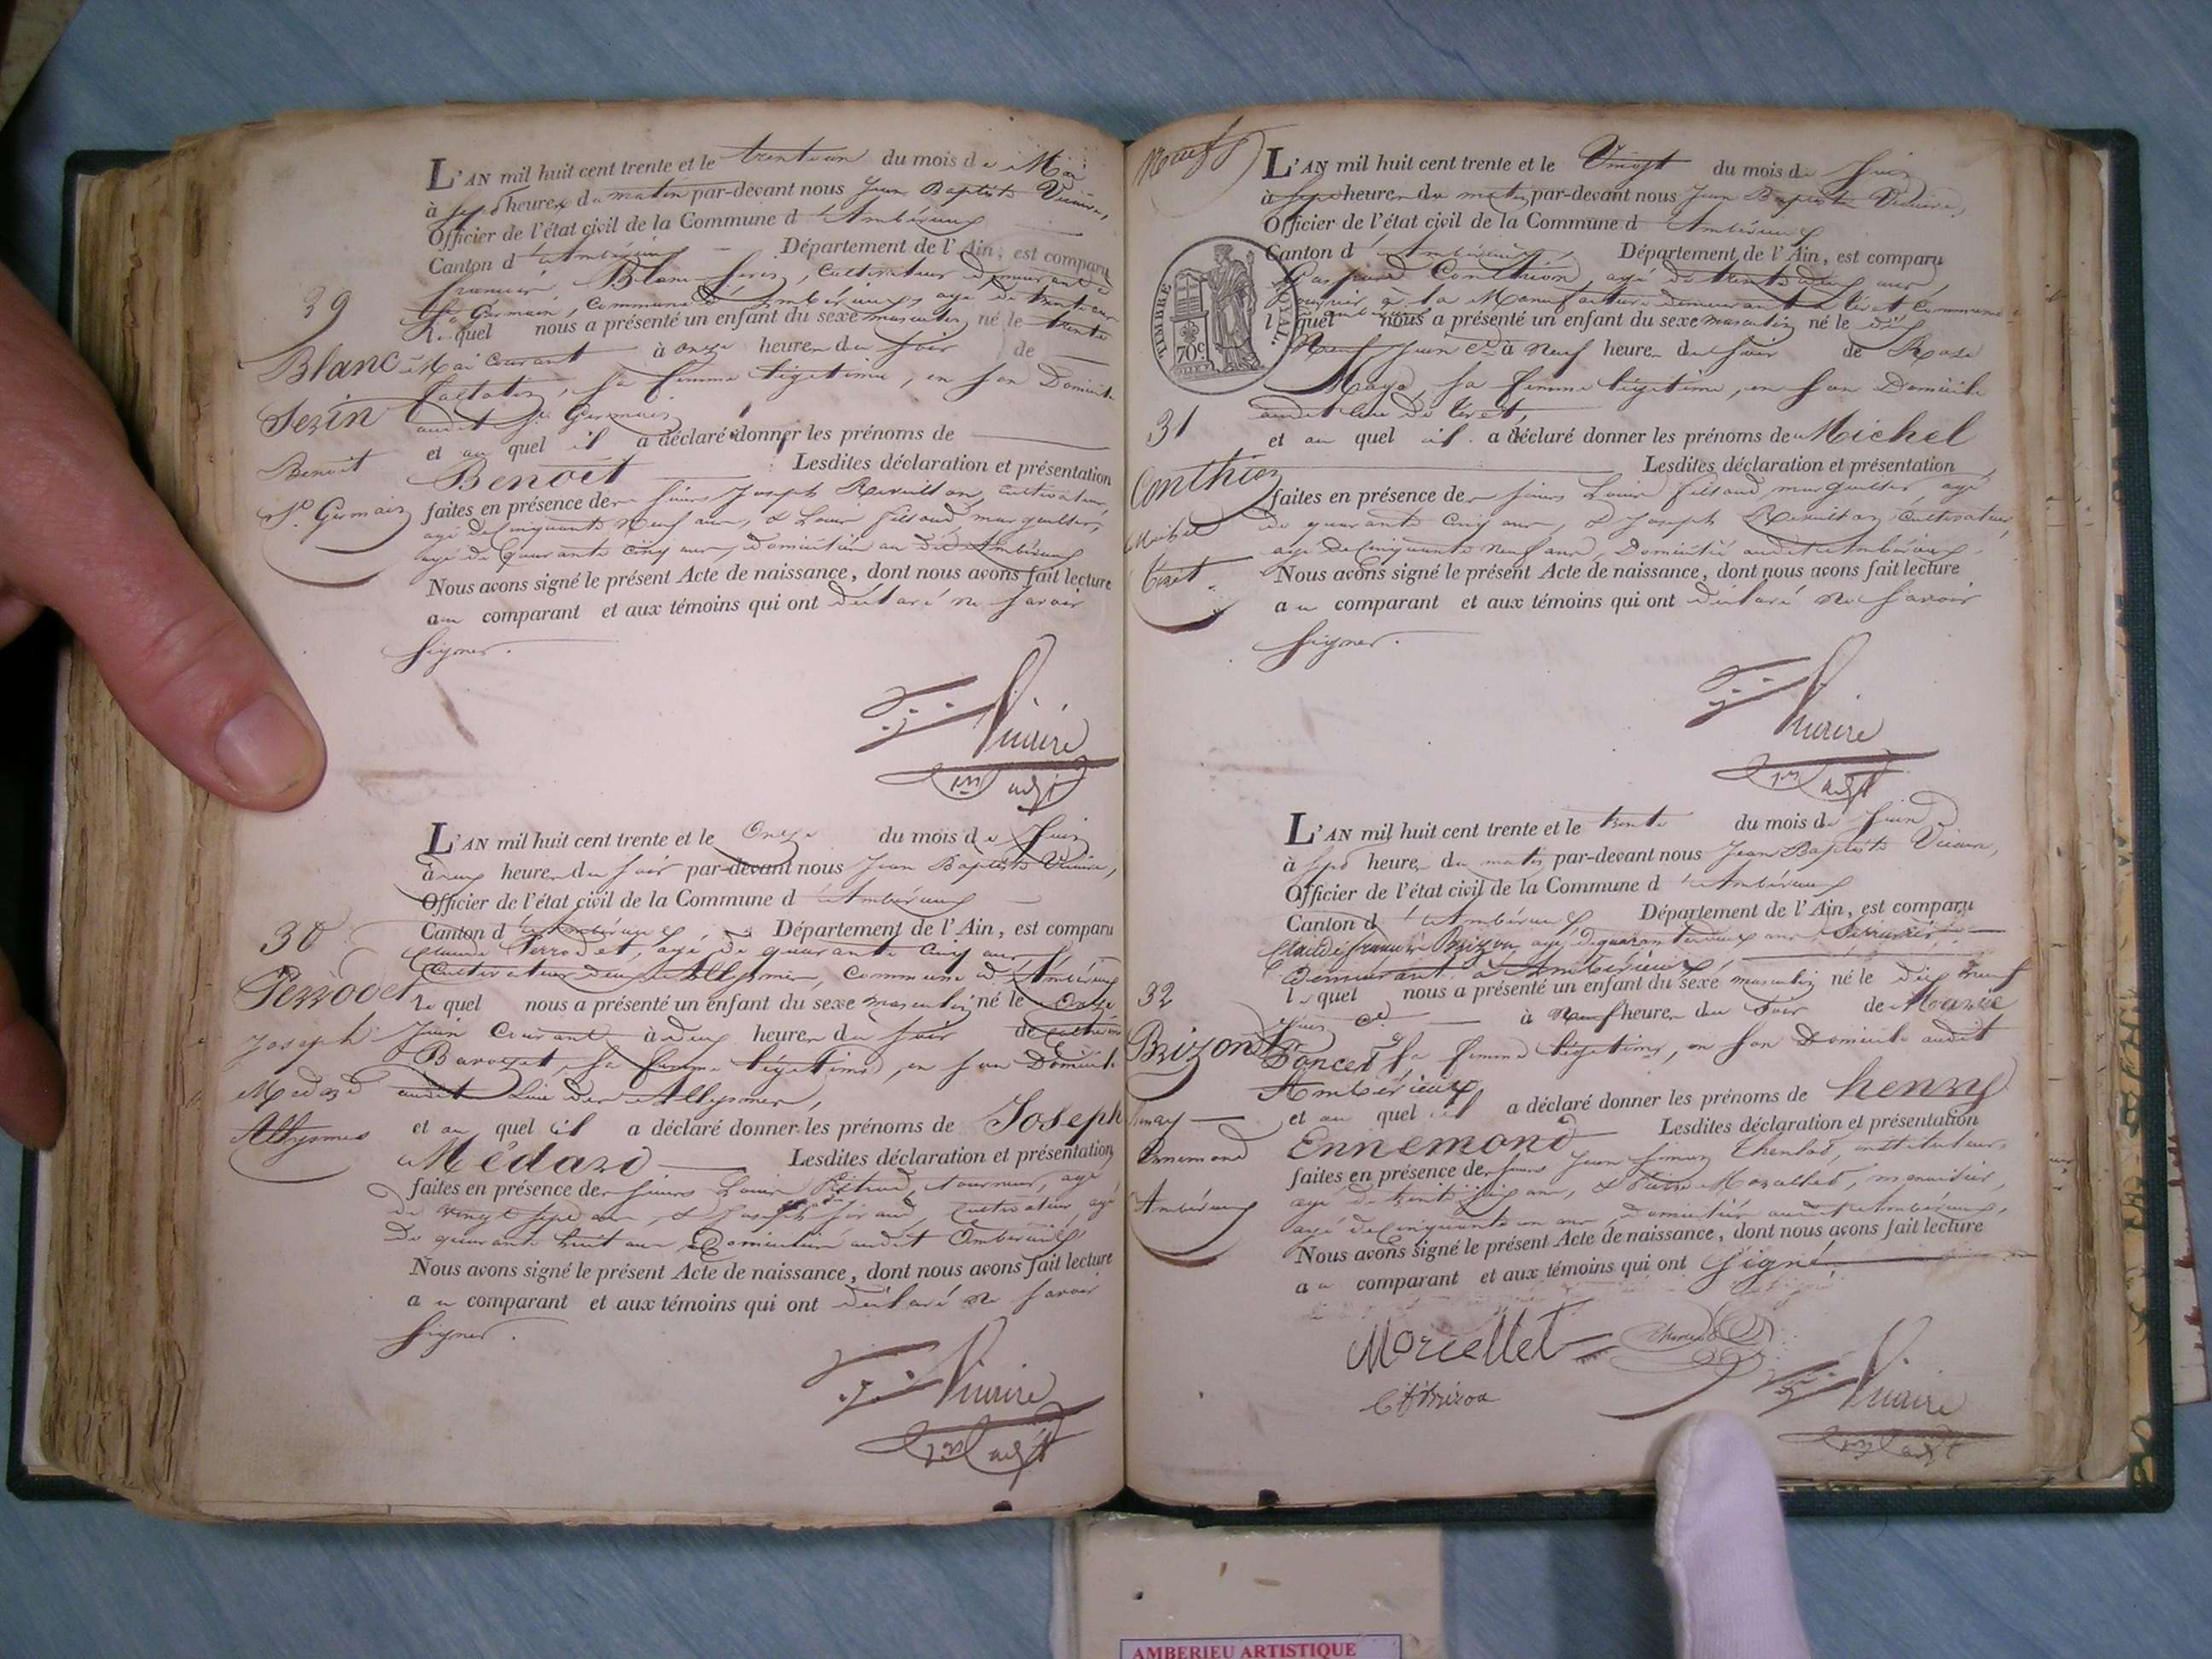 L'AN mil huit cent trente et le trente un du mois de Mai
à sept heures du matin par-devant nous Jean Baptiste Vicaire,
Officier de l'état civil de la Commune d'Ambérieux
Canton d'Ambérieux Département de l'Ain, est comparu
Blanc Serin, Cultivateur demeurant à
St Germain, Commune d'Ambérieux, agé de trente
39
Lequel nous a présenté un enfant du sexe masculin né le trente
Blanc Mai Courant à onze heures du soir de
sa femme légitime, en son Domicile
Serin
audit St Germain
et au quel il a déclaré donner les prénoms de
Benoit
Benoit Lesdites déclaration et présentation
St Germain
faites en présence des sieurs Joseph Revuillon, cultivateur,
agé de Cinquante Neuf ans, & Louis Filliaud, marguillier,
agé de quarante cinq ans, domiciliés au dit Ambérieux
Nous avons signé le présent Acte de naissance, dont nous avons fait lecture
au comparant et aux témoins qui ont déclaré ne savoir
signer.
L'AN mil huit cent trente et le Onze du mois de Juin
à deux heures du soir par-devant nous Jean Baptiste Vicaire,
Officier de l'état civil de la Commune d'Ambérieux
Canton d'Ambérieux, Département de l'Ain, est comparu
30
Claude Perrodet, agé de quarante cinq ans,
Cultivateur aux Allymes, Commune d'Ambérieux
Perrodet
Lequel nous a présenté un enfant du sexe masculin né le Onze
Joseph
Juin Courant à deux heures du soir de
sa femme légitime, en son Domicile
Medard
audit Lieu des Allymes,
Allymes
et au quel il a déclaré donner les prénoms de Joseph
Médard Lesdites déclaration et présentation
faites en présence des sieurs Louis tourneur, agé
de vingt sept ans, & Joseph cultivateur agé
De quarante huit ans Domiciliés audit Ambérieux,
Nous avons signé le présent Acte de naissance, dont nous avons fait lecture
au comparant et aux témoins qui ont déclaré ne savoir
signer.
L'AN mil huit cent trente et le Vingt du mois de Juin
à sept heures du matin par-devant nous Jean Baptiste Vicaire,
Officier de l'état civil de la Commune d'Ambérieux
Canton d'Ambérieux, Département de l'Ain, est comparu
Gaspard Conthion, agé de trente deux ans,
à la Manufacture demeurant à Tiret Commune
TIMBRE ROYAL. 70c
lequel nous a présenté un enfant du sexe masculin né le dix
Neuf Juin Ct à Neuf heures du soir de Rose
sa femme légitime, en son Domicile
audit lieu de Tiret,
31
et au quel il a déclaré donner les prénoms de Michel
Lesdites déclaration et présentation
Conthion
faites en présence des sieurs Louis Filliaud, marguillier, agé
Michel
de quarante cinq ans, & Joseph Revuillon, Cultivateur,
agé de Cinquante neuf ans, Domiciliés audit Ambérieux.
Tiret.
Nous avons signé le présent Acte de naissance, dont nous avons fait lecture
au comparant et aux témoins qui ont déclaré ne savoir
signer.
L'AN mil huit cent trente et le trente du mois de Juin
à sept heures du matin par-devant nous Jean Baptiste Vicaire,
Officier de l'état civil de la Commune d'Ambérieux
Canton d'Ambérieux Département de l'Ain, est comparu
Claude françois Brizon, agé de quarante deux ans, Serrurier,
Demeurant à Ambérieux,
lequel nous a présenté un enfant du sexe masculin né le dix neuf
32
Juin Ct à neuf heures du soir de Marie
Brizon
Poncet, sa femme légitime, en son Domicile audit
Ambérieux,
et au quel il a déclaré donner les prénoms de henry
henry
Ennemond Lesdites déclaration et présentation
Ennemond
faites en présence des sieurs Jean Simon instituteur,
agé de trente six ans, & Pierre Morcellet, menuisier,
Ambérieux
agé de Cinquante un ans, domiciliés audit Ambérieux,
Nous avons signé le présent Acte de naissance, dont nous avons fait lecture
au comparant et aux témoins qui ont Signé
Morcellet
Cf Brizon
AMBERIEU ARTISTIQUE